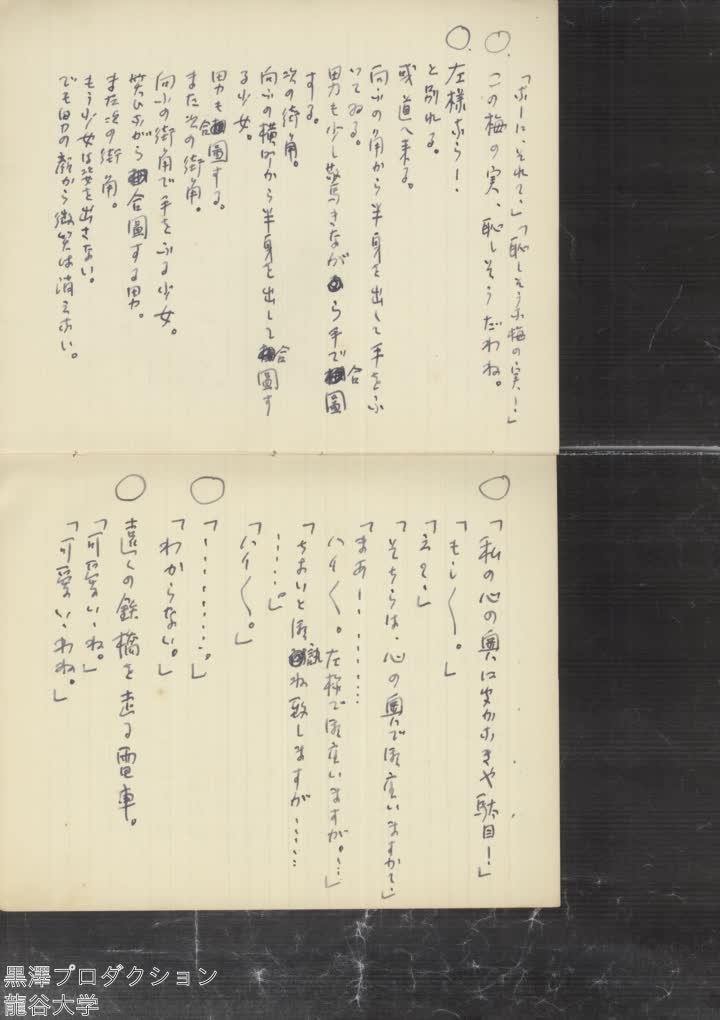 ○「ホーに、それで」「恥しそうな梅の実！」
この梅の実、恥しそうだわね。
○左様なら！
と別れる。
或道へ来る。
向ふの角から半身を出して手をふ
いてゐる。
男も少し驚きながら手で合圖
する。
次の街角。
向ふの横町から半身を出して合圖す
る少女。
男も合圖する。
また次の街角。
向ふの街角で手をふる少女。
笑ひながら合圖する男。
また次の街角。
もう少女は姿を出さない。
でも男の顔から微笑は消えない。
○「私の心の奥に聞かなきや駄目！」
「もし〱。」
「えゝ」
「そちらは、心の奥で御座いますか？」
「まあー…………
ハイ〱。左様で御座いますが。…」
「ちょいと御訊ね致しますが……
……。」
「ハイ〱。」
○「………。」
「わからない。」
○遠くの鉄橋を走る電車。
「可愛いゝね。」
「可愛いゝわね。」
黒澤プロダクション
龍谷大学